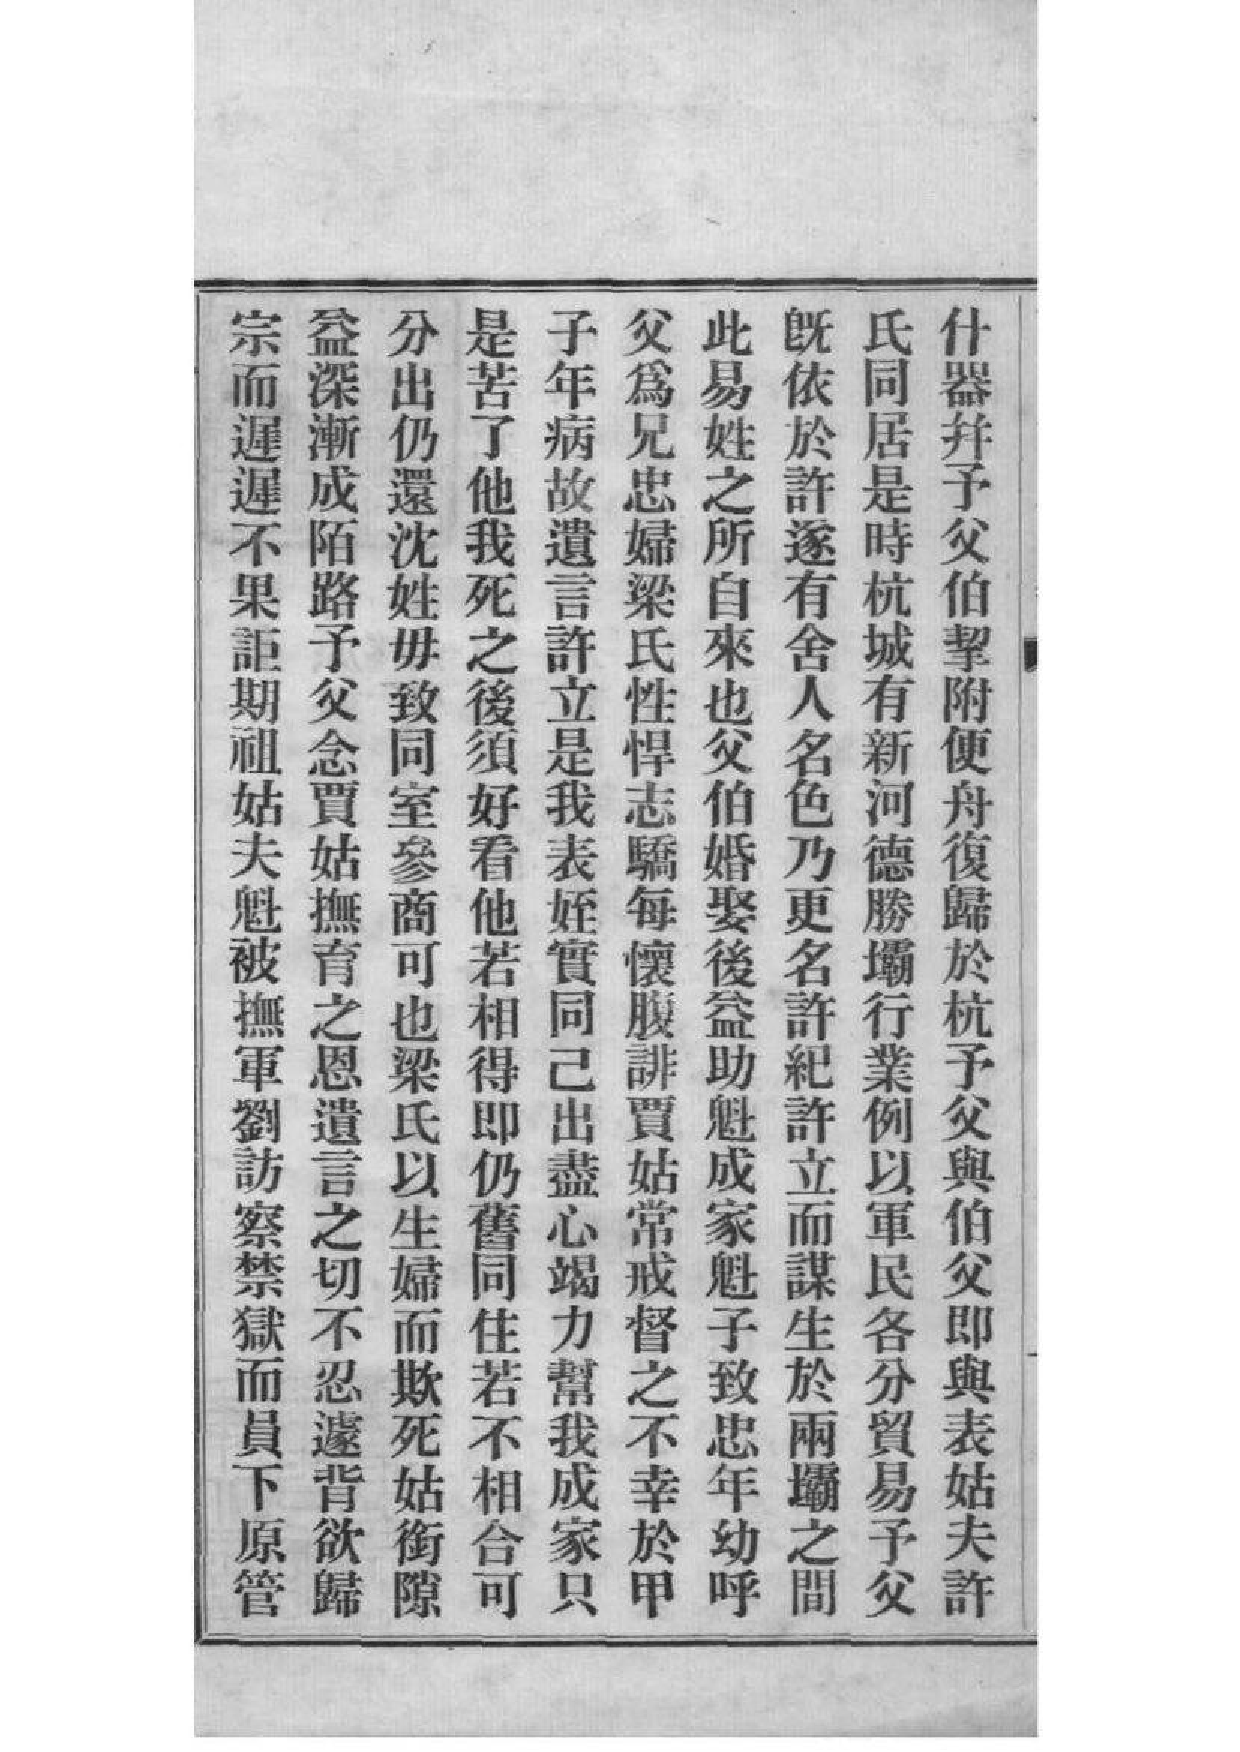 什器幷予父伯挈附便舟復歸於杭予父與伯父即與表姑夫許
氏同居是時杭城有新河德勝壩行業例以軍民各分貿易予父
旣依於許遂有舍人名色乃更名許紀許立而謀生於兩壩之間
此易姓之所自來也父伯婚娶後益助魁成家魁子致忠年幼呼
父爲兄忠婦梁氏性悍志驕每懷腹誹賈姑常戒督之不幸於甲
子年病故遺言許立是我表姪實同己出盡心竭力幫我成家只
是苦了他我死之後須好看他若相得即仍舊同住若不相合可
分出仍還沈姓毋致同室參商可也梁氏以生婦而欺死姑銜隙
益深漸成陌路予父念賈姑撫育之恩遺言之切不忍遽背欲歸
宗而遲遲不果詎期祖姑夫魁被撫軍劉訪察禁獄而員下原管